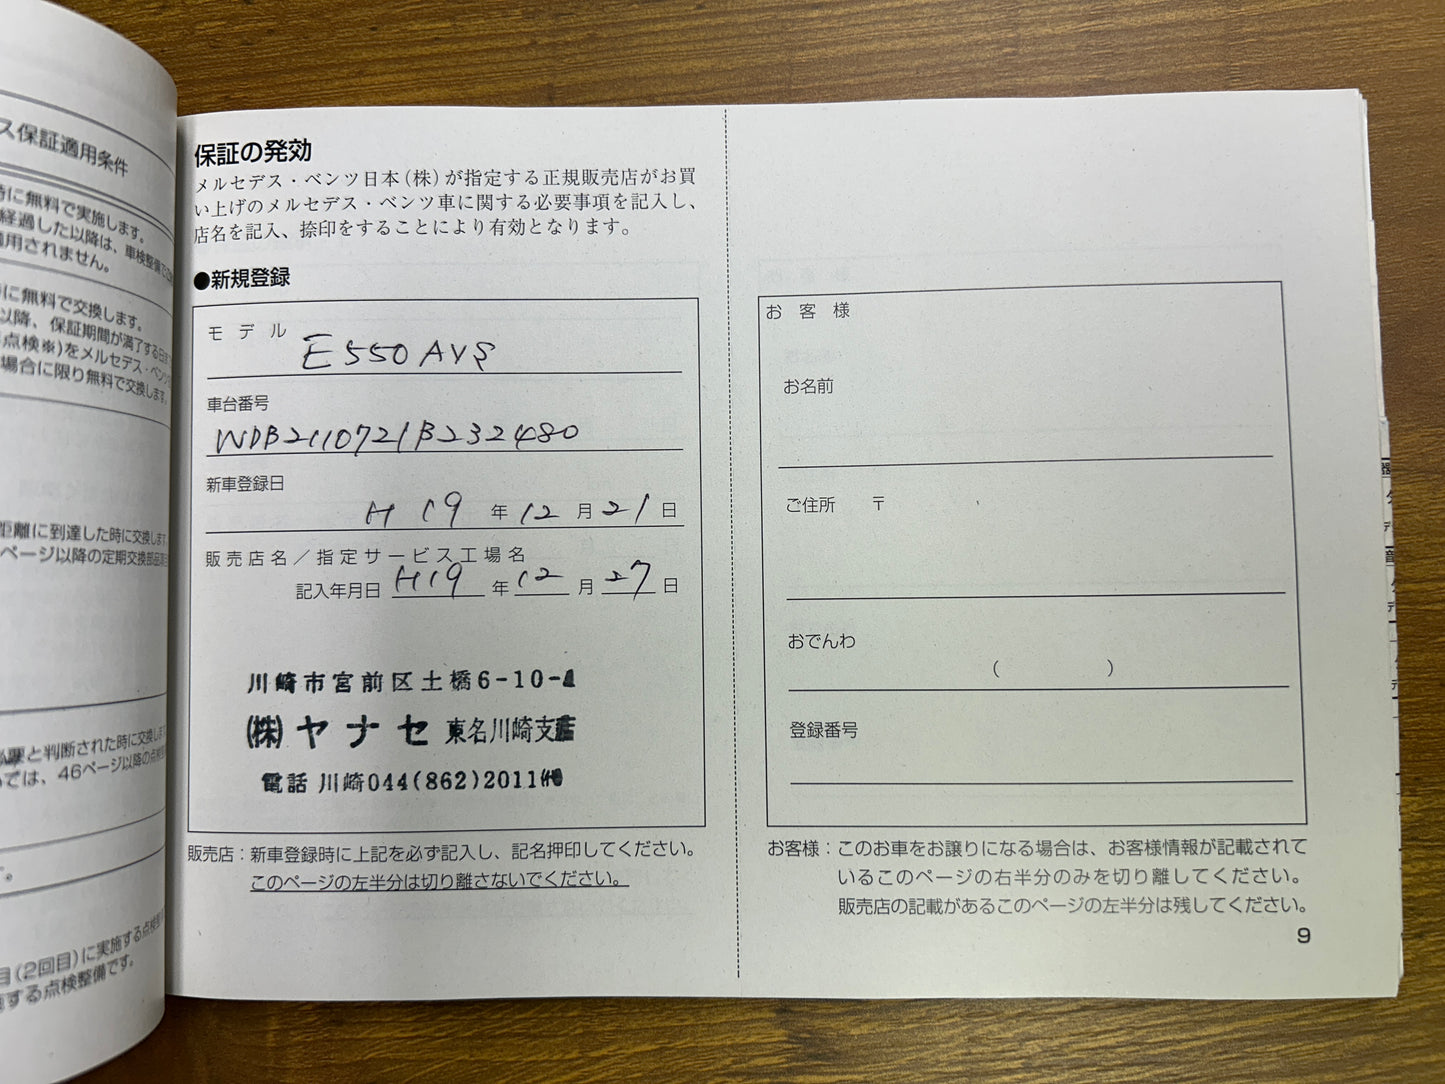 ス保証適用条件
時に無料で実施します。
経過した以降は、車検整備で
適用されません。
に無料で交換します。
以降、保証期間が満了する日
点検※)をメルセデス・ベンツ
場合に限り無料で交換します。
距離に到達した時に交換します
ページ以降の定期交換部品
必要と判断された時に交換しま
では、46ページ以降の点検
目(2回目)に実施する点検整備
する点検整備です。
保証の発効
メルセデス・ベンツ日本(株)が指定する正規販売店がお買
い上げのメルセデス・ベンツ車に関する必要事項を記入し、
店名を記入、捺印をすることにより有効となります。
●新規登録
モデル
E550AVG
車台番号
WDB2110721B232480
新車登録日
H19年12月21日
販売店名／指定サービス工場名
記入年月日 H19年12月27日
川崎市宮前区土橋6-10-4
(株)ヤナセ 東名川崎支店
電話 川崎044(862)2011㈹
販売店：新車登録時に上記を必ず記入し、記名押印してください。
このページの左半分は切り離さないでください。
お客様
お名前
ご住所 〒
おでんわ
( )
登録番号
お客様：このお車をお譲りになる場合は、お客様情報が記載されて
いるこのページの右半分のみを切り離してください。
販売店の記載があるこのページの左半分は残してください。
9